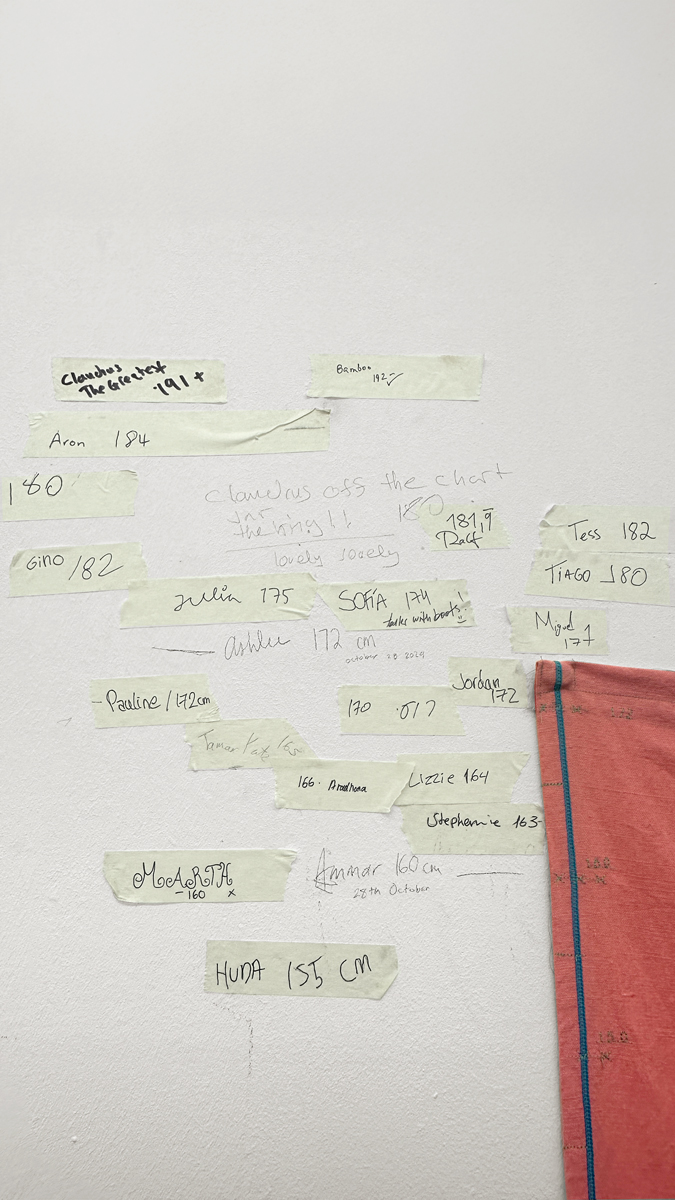 Claudius
The Greatest 191+
Bamboo
192
Aron 184
180
claudius off the chart
the king!!
180
lovely lovely
181,9
Ralf
Tess 182
Gino 182
TiAGO 180
Julia 175
SOFíA 174
talks with boots!
Miguel
177
ashlee 172 cm
october 28 2024
Jordan
172
- Pauline / 172cm
170
Tamar Kaz 165
166. Aradhana
Lizzie 164
Stephannie 163-
MARTH
-160 x
Ammar 160 cm
28th October
HUDA 155 CM